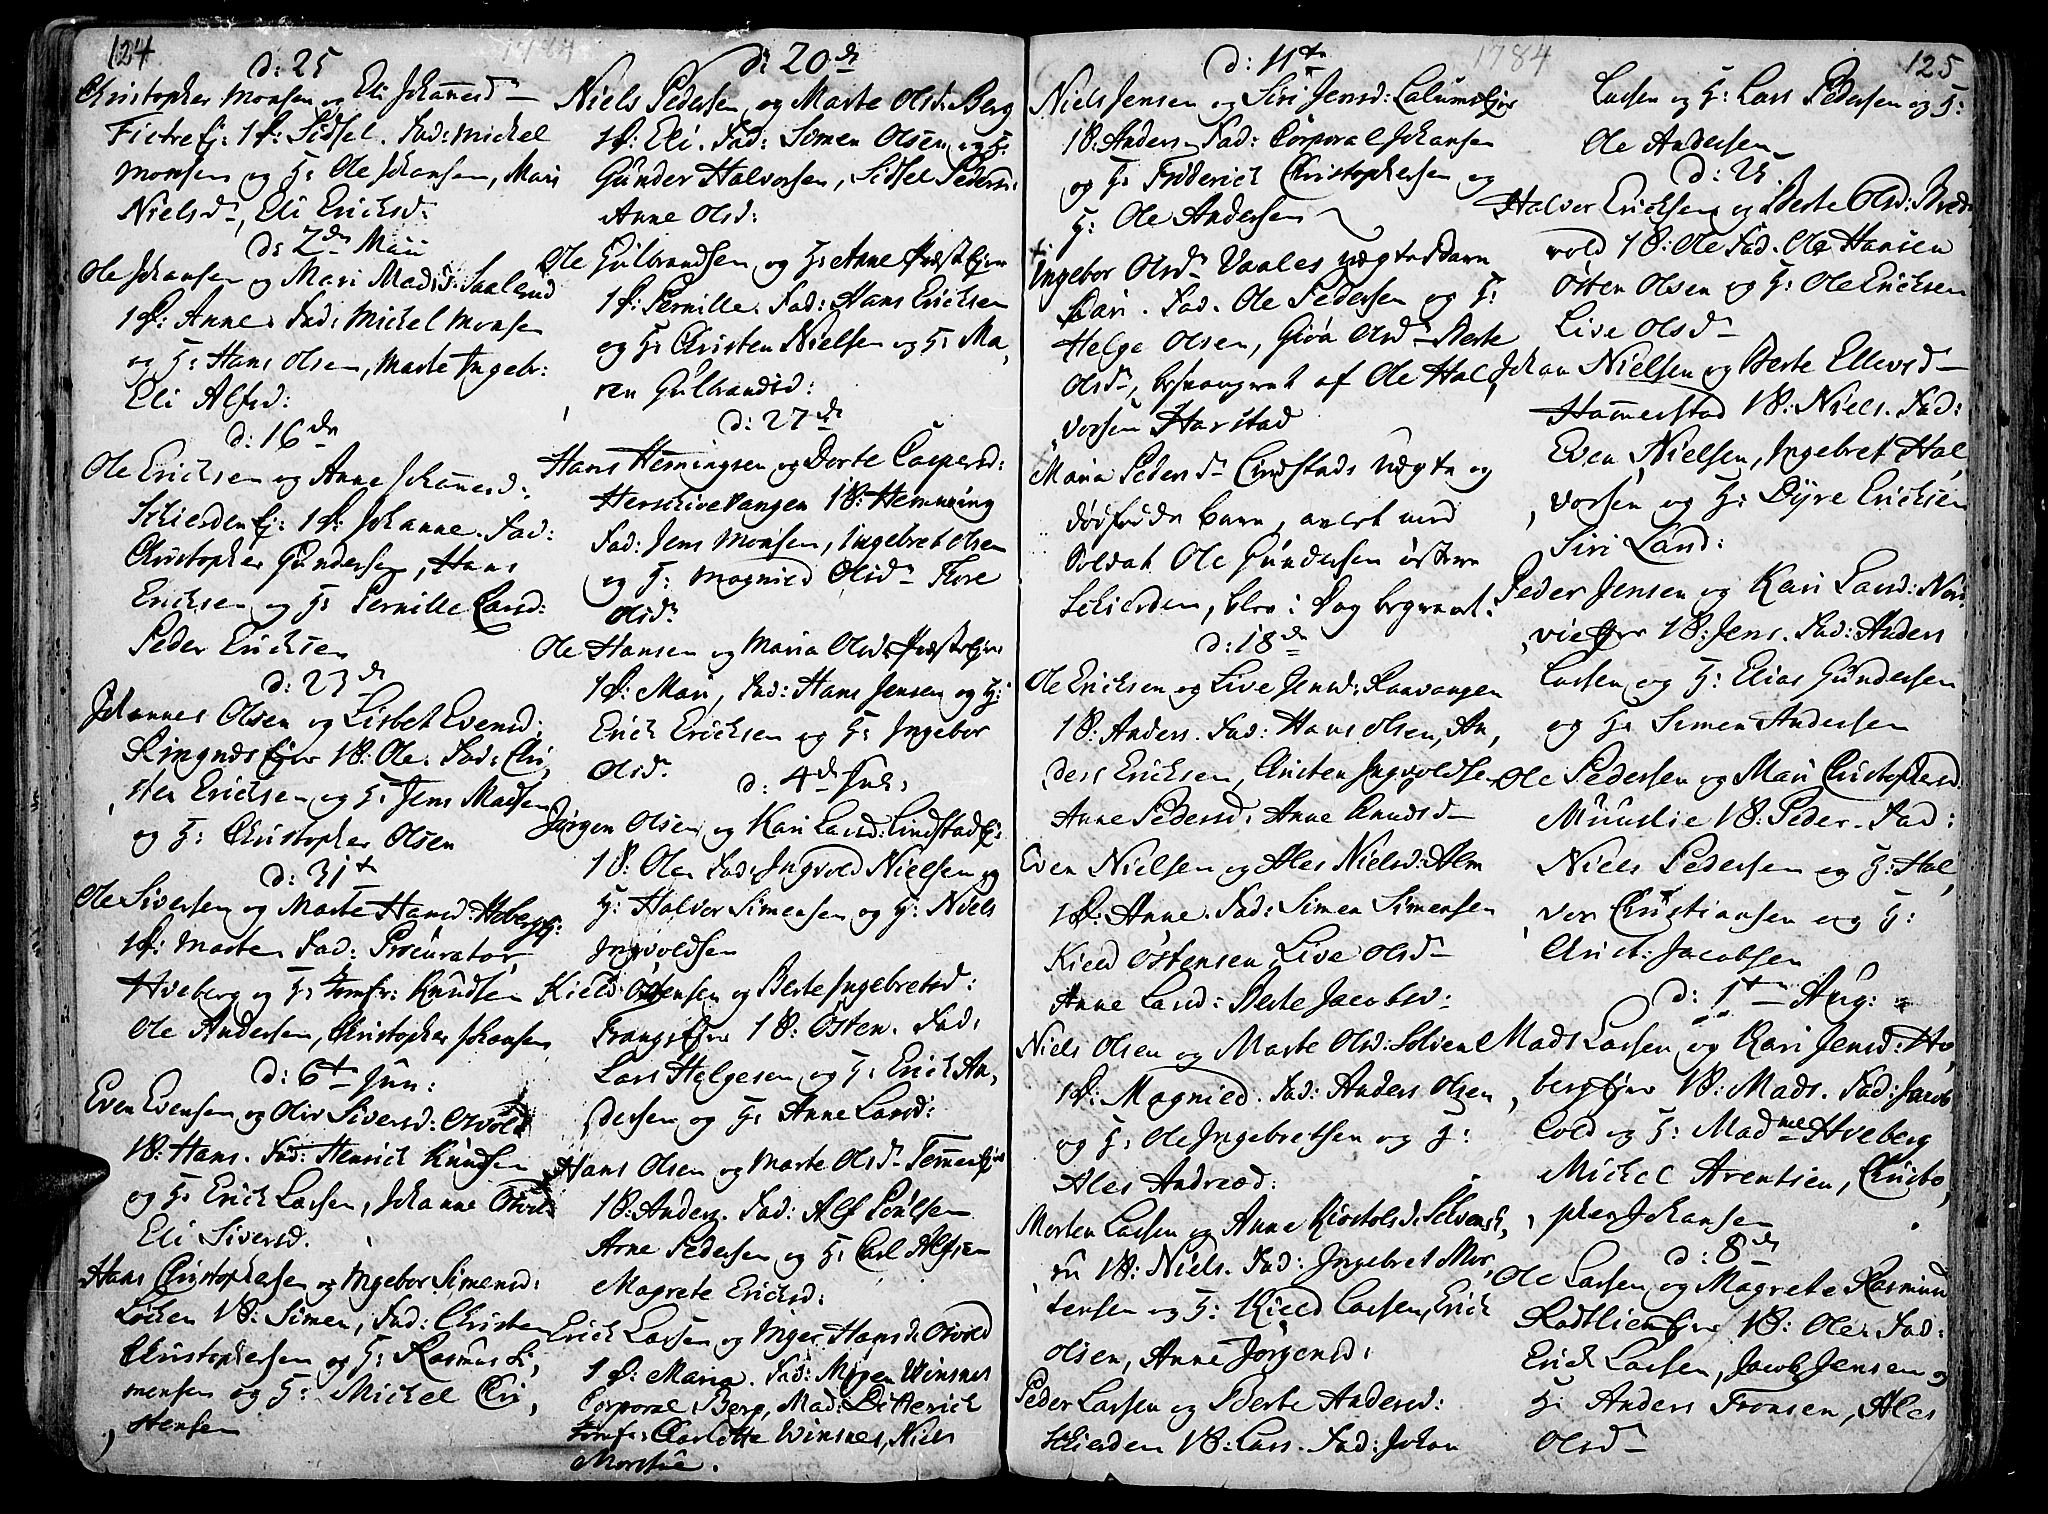 124
d: 25
Christopher Monsen og Eli Johannesd
Fictre Ej: 1 P: Sidsel. Fad: Mickel
Monsen og H: Ole Johansen, Mari
Nielsd, Eli Ericksd:
d: 2den Maii
Ole Johansen og Mari Madsd:
1 P: Anne. Fad: Mickel Monsen
og H: Hans Olsen, Marte Ingebr:
Eli Alfsd:
d: 16de
Ole Ericksen og Anne Johannesd:
Skierden Ej: 1 P: Johanne. Fad:
Christopher Gundersen, Hans
Ericksen og H: Pernille Larsd:
Peder Ericksen
d: 23de
Johannes Olsen og Lisbet Evensd:
Ringnds Ejer 1 B: Ole. Fad: Chri,
sten Ericksen og H: Jens Madsen
og H: Christopher Olsen
d: 31t
Ole Siversen og Marte Hansd:
1 P: Marte. Fad: Procurator
Hveberg og H: Jomfr: Knudsen
Ole Andersen, Christopher Johansen
d: 6te Jun:
Even Evensen og Oliv Siversd: Osvold
1 B: Hans. Fad: Henrich Knudsen
og H: Erick Larsen, Johanne Osvol:
Eli Siversd.
Hans Christophersen og Ingebor Simensd:
Løken 1 B: Simen, Fad: Christen
Christophersen og H: Rasmus Si,
mensen og H: Mickel Chri,
stensen
1784
d: 20de
Niels Pedersen og Marte Olsd: Berg
1 P: Eli. Fad: Simen Olsen og H:
Gunder Halvorsen, Sidsel Pedersd:
Anne Olsd:
Ole Gulbrandsen og H: Anne Præst Ejer
1 P: Pernille. Fad: Hans Ericksen
og H: Christen Nielsen og H: Ma,
ren Gulbrandsd:
d: 27de
Hans Hemingsen og Dorte Caspersd:
Herschivevangen 1 B: Hemming
Fad: Jens Monsen, Ingebret Olsen
og H: Magnild Olsd Tore
Olsd
Ole Hansen og Maria Olsd: Præst Ejer
1 P: Mari, Fad: Hans Jensen og H:
Erick Ericksen og H: Ingebor
Olsd.
d: 4de Jul:
Jørgen Olsen og Kari Larsd: Lindstad Ej:
1 B: Ole. Fad: Ingvold Nielsen og
H: Halvor Simensen og H: Niels
Ingvoldsen
Kield Østensen og Berte Ingebretsd:
Trangs Ejer 1 B: Østen. Fad:
Lars Helgesen og H: Erick An,
dersen og H: Anne Larsd:
Hans Olsen og Marte Olsd
1 B: Anders. Fad: Alf Poulsen
Arne Pedersen og H: Carl Alfsen
Magrete Ericksd:
Erick Larsen og Inger Hansd: Osvold
1 P: Maria. Fad: Major Winsnes
Corporal Berg, Mad: Ditterich
Jomfr: Charlotte Winsnes, Niels
Morstue.
1784
d: 11te
Niels Jensen og Siri Jensd: Calums Ejer
1 B: Anders. Fad: Corporal Johansen
og H: Friderich Christophersen og
H: Ole Andersen
Ingebor Olsd Vaales uægte Barn
Kari. Fad. Ole Pedersen og H:
Helge Olsen, Giøa Olsd Berte
Olsd, besvangret af Ole Hal,
vorsen Harstad
Maria Pedersd Lindstads uægte og
dødfødde barn, avlet med
Soldat Ole Gundersen østere
Skierden, blev i Dag begravet.
d: 18de
Ole Ericksen og Live Jensd: Raavangen
1 B: Anders. Fad: Hans Olsen, An,
ders Ericksen, Christen Ingvoldsen
Anne Pedersd: Anne Knudsd
Even Nielsen og Ales Nielsd: Alm
1 P: Anne. Fad: Simen Simensen
Kield Østensen, Live Olsd
Anne Larsd: Berte Jacobsd:
Niels Olsen og Marte Olsd:
1 P: Magnied. Fad: Anders Olsen
og H: Ole Ingebretsen og H:
Ales Andreæd:
Morten Larsen og Anne
1 B: Niels. Fad: Ingebret Mor,
tensen og H: Kield Larsen, Erick
Olsen, Anne Jørgensd:
Peder Larsen og Berte Andersd:
Skierden 1 B: Lars. Fad: Johan
125
Larsen og H: Lars Pedersen og H:
Ole Andersen
d: 25.
Halvor Ericksen og Berte Olsd: Bred,
vold 1 B: Ole Fad. Ole Hansen
Østen Olsen og H: Ole Ericksen
Live Olsd
Johan Nielsen og Berte Ellevsd
Hammerstad 1 B: Niels. Fad:
Even Nielsen, Ingebret Hal,
vorsen og H: Dyre Ericksen
Siri Larsd:
Peder Jensen og Kari Larsd: Nor,
vie Ejer 1 B: Jens. Fad: Anders
Larsen og H: Elias Gundersen
og H: Simen Andersen
Ole Pedersen og Mari Christophersd:
Muuslie 1 B: Peder. Fad:
Niels Pedersen og H: Hal,
vor Christiansen og H:
Christ: Jacobsen
d: 1te Aug:
Mads Larsen og Kari Jensd: Ho,
berg Ejer 1 B: Mads. Fad: Jacob
Cold og H: Madme Hveberg
Mickel Arentsen, Christo,
pher Johansen
d: 8de
Ole Larsen og Magrete Rasmusd
1 B: Ole. Fad:
Erick Larsen, Jacob Jensen og
H: Anders Fronsen, Ales
Olsd